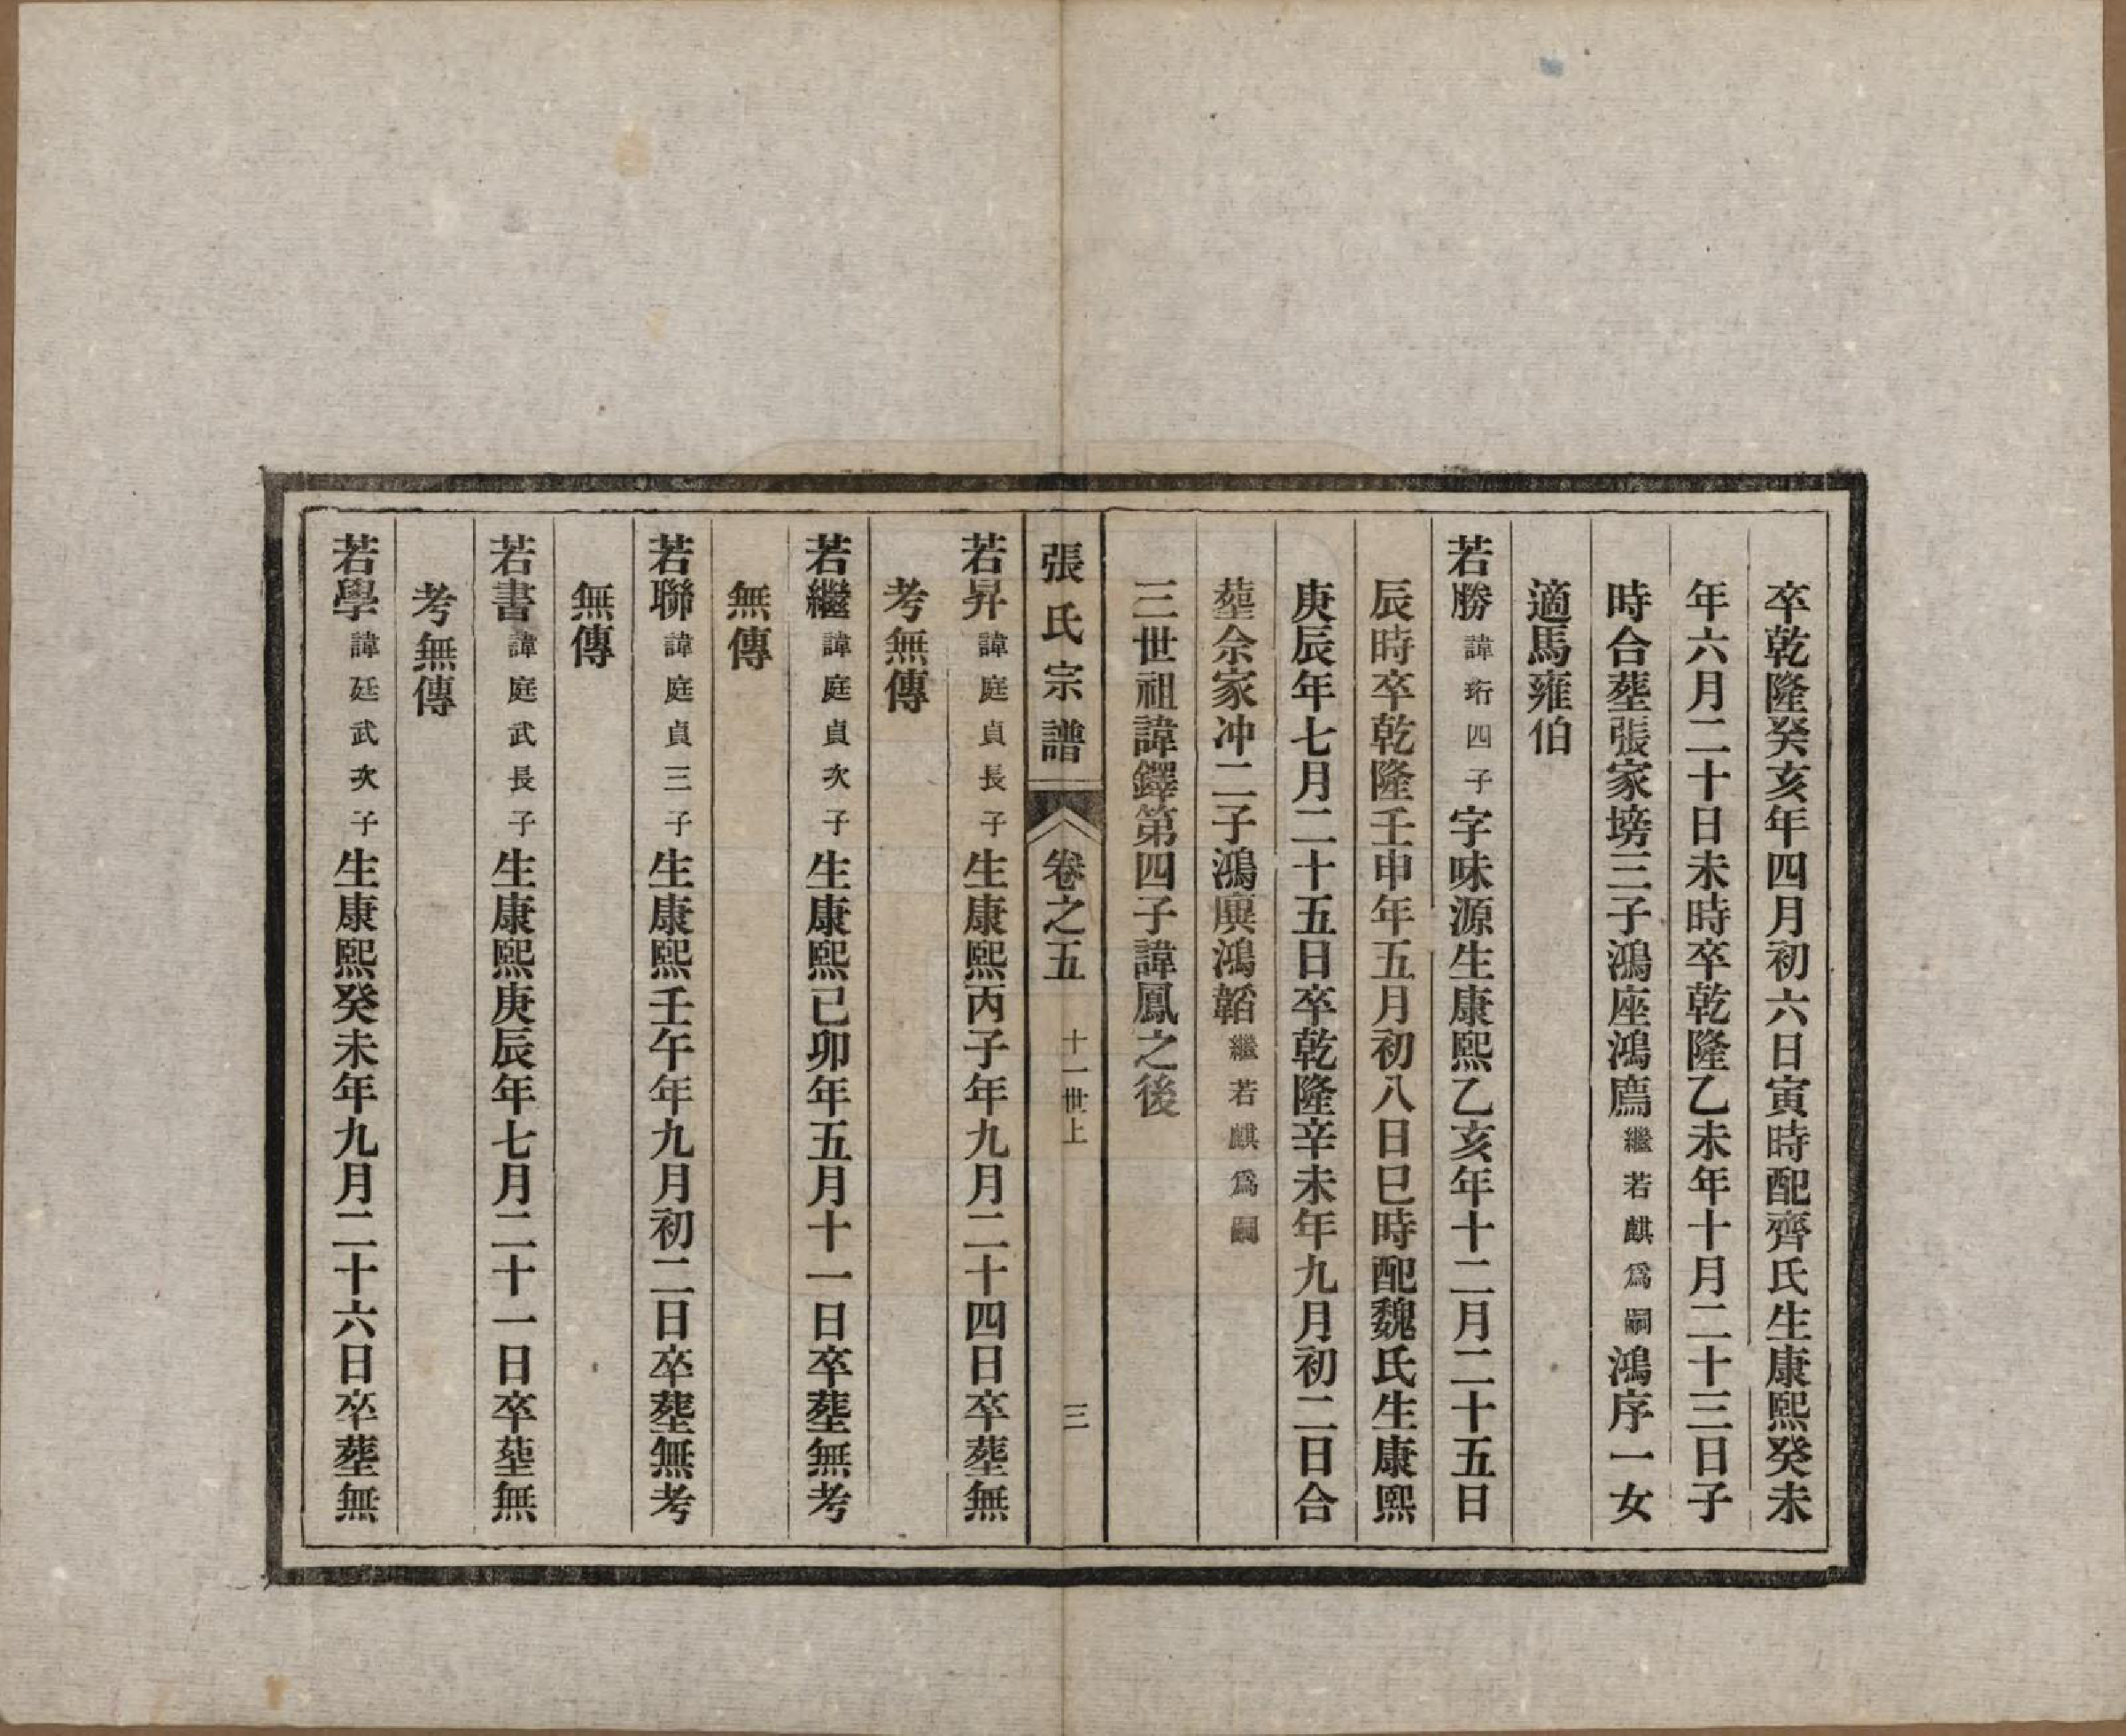 卒乾隆癸亥年四月初六日寅時配齊氏生康熙癸未
年六月二十日未時卒乾隆乙未年十月二十三日子
時合塟張家塝三子鴻座鴻廌繼若麒爲嗣鴻序一女
適馬雍伯
若勝諱珩四子字味源生康熙乙亥年十二月二十五日
辰時卒乾隆壬申年五月初八日巳時配魏氏生康熙
庚辰年七月二十五日卒乾隆辛未年九月初二日合
塟余家冲二子鴻廙鴻韜繼若麒爲嗣
三世祖諱鐸第四子諱鳳之後
張氏宗譜 卷之五 十一世上 三
若昇諱庭貞長子生康熙丙子年九月二十四日卒塟無
考無傳
若繼諱庭貞次子生康熙己卯年五月十一日卒塟無考
無傳
若聯諱庭貞三子生康熙壬午年九月初二日卒塟無考
無傳
若書諱庭武長子生康熙庚辰年七月二十一日卒塟無
考無傳
若學諱廷武次子生康熙癸未年九月二十六日卒塟無